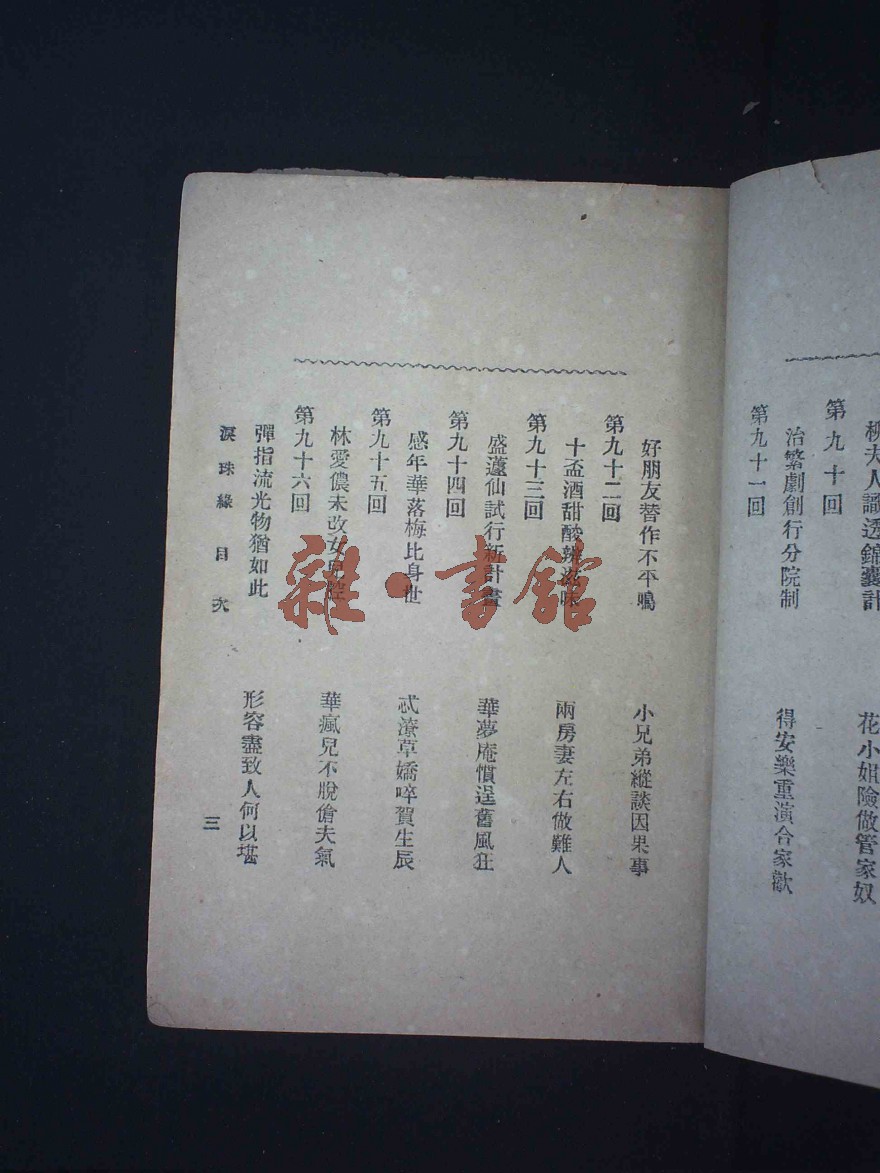 柳夫人識透錦囊計 花小姐險做管家奴
第九十回
治繁劇創行分院制 得安樂重演合家歡
第九十一回
好朋友替作不平鳴 小兄弟縱談因果事
第九十二回
十盃酒甜酸辨滋味 兩房妻左右做難人
第九十三回
盛蘧仙試行新計畫 華夢庵慣逞舊風狂
第九十四回
感年華落梅比身世 忒潦草嬌啐賀生辰
第九十五回
林愛儂未改女兒腔 華瘋兒不脫傖夫氣
第九十六回
彈指流光物猶如此 形容盡致人何以堪
淚珠緣 目次 三
雜·書館